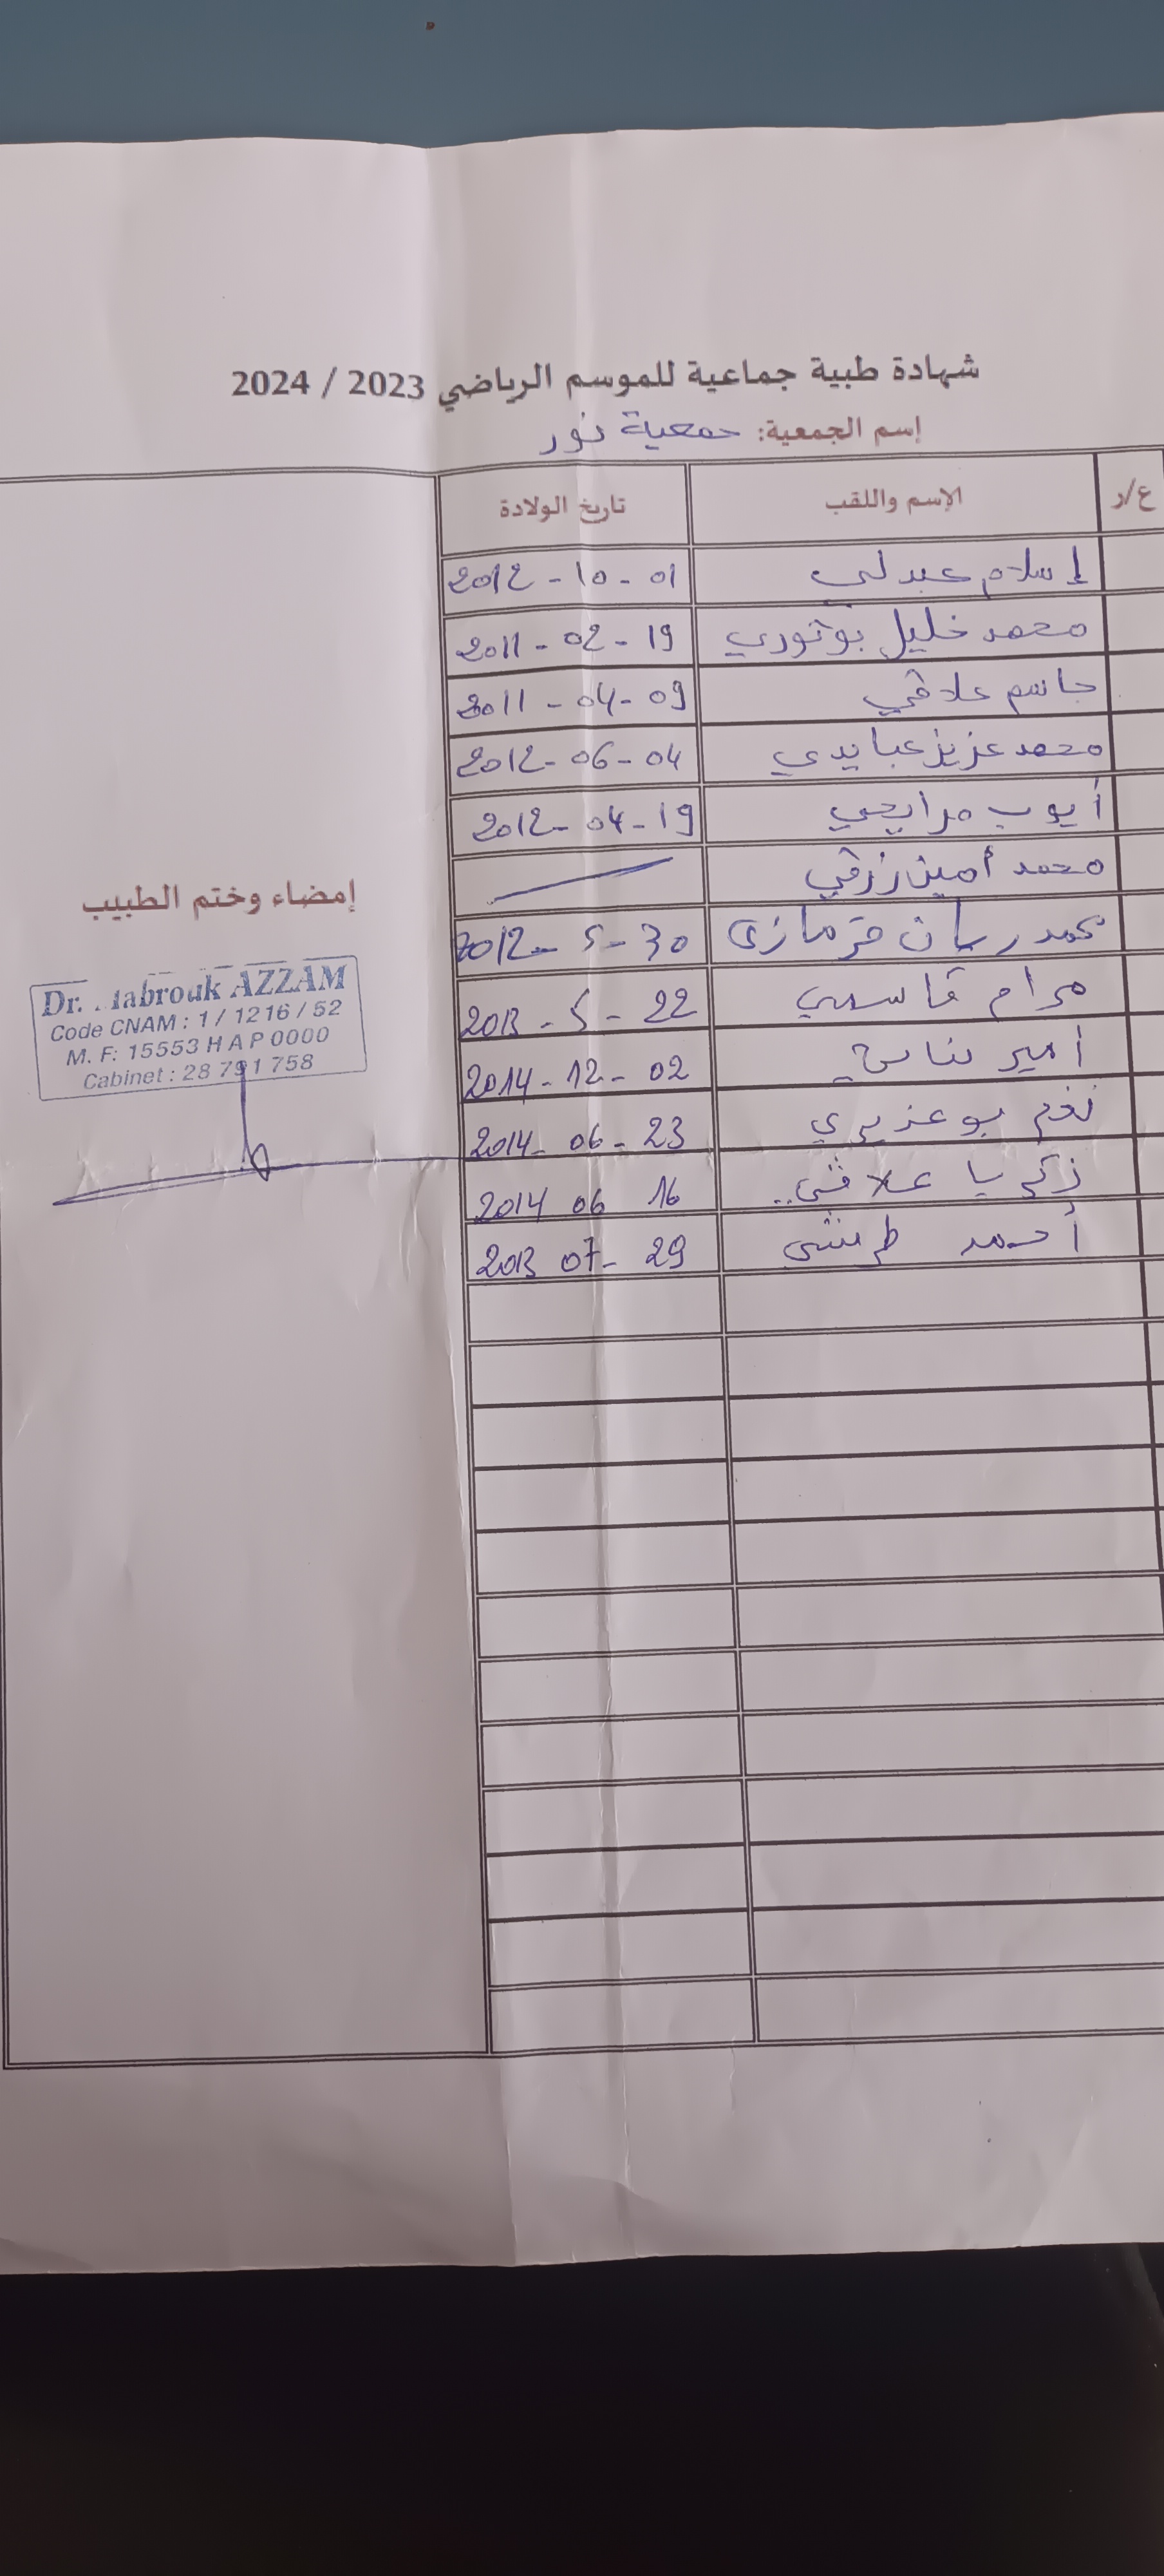 شهادة طبية جماعية للموسم الرياضي 2023 / 2024
إسم الجمعية: جمعية نور
ع/ر الإسم واللقب تاريخ الولادة
إسلام عبدلي 2012 - 10 - 01
محمد خليل بوثوري 2011 - 02 - 19
جاسم علاقي 2011 - 04 - 09
محمد عزيز عبايدي 2012 - 06 - 04
أيوب مرايحي 2012 - 04 - 19
محمد أمين زرقي
محمد ريان قرمازي 2012 - 5 - 30
مرام قاسمي 2013 - 5 - 22
أمير 2014 - 12 - 02
نغم بوعزيزي 2014 - 06 - 23
زكريا علاقي 2014 06 16
أحمد طرشي 2013 07 - 29
إمضاء وختم الطبيب
Dr. Mabrouk AZZAM
Code CNAM : 1 / 1216 / 52
M. F: 15553 H A P 0000
Cabinet : 28 791 758